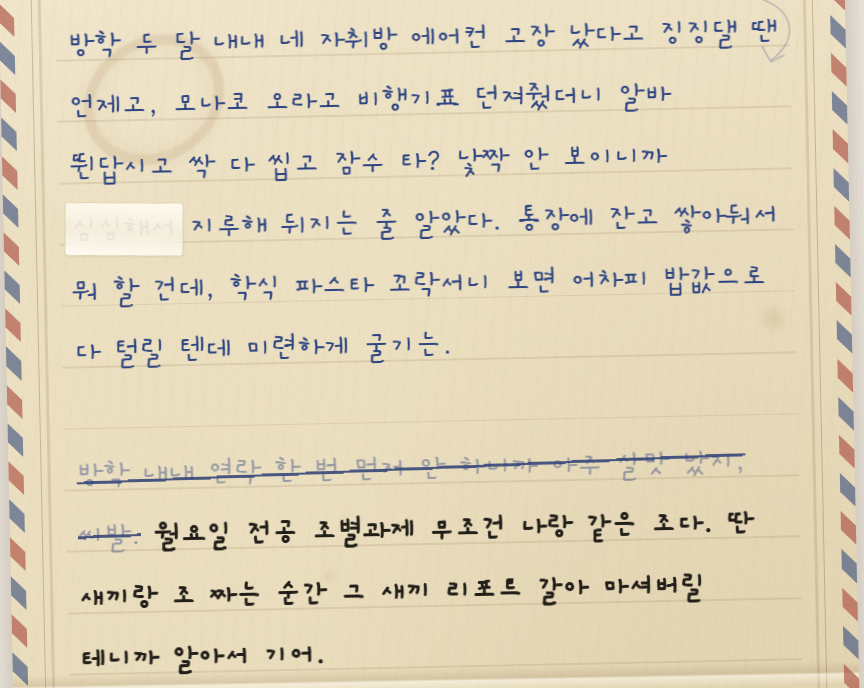 방학 두 달 내내 네 자취방 에어컨 고장 났다고 징징댈 땐
언제고, 모나코 오라고 비행기표 던져줬더니 알바
뛴답시고 싹 다 씹고 잠수 타? 낯짝 안 보이니까
심심해서 지루해 뒤지는 줄 알았다. 통장에 잔고 쌓아둬서
뭐 할 건데, 학식 파스타 꼬락서니 보면 어차피 밥값으로
다 털릴 텐데 미련하게 굴기는.
방학 내내 연락 한 번 먼저 안 하니까 아주 살맛 났지,
씨발. 월요일 전공 조별과제 무조건 나랑 같은 조다. 딴
새끼랑 조 짜는 순간 그 새끼 리포트 갈아 마셔버릴
테니까 알아서 기어.